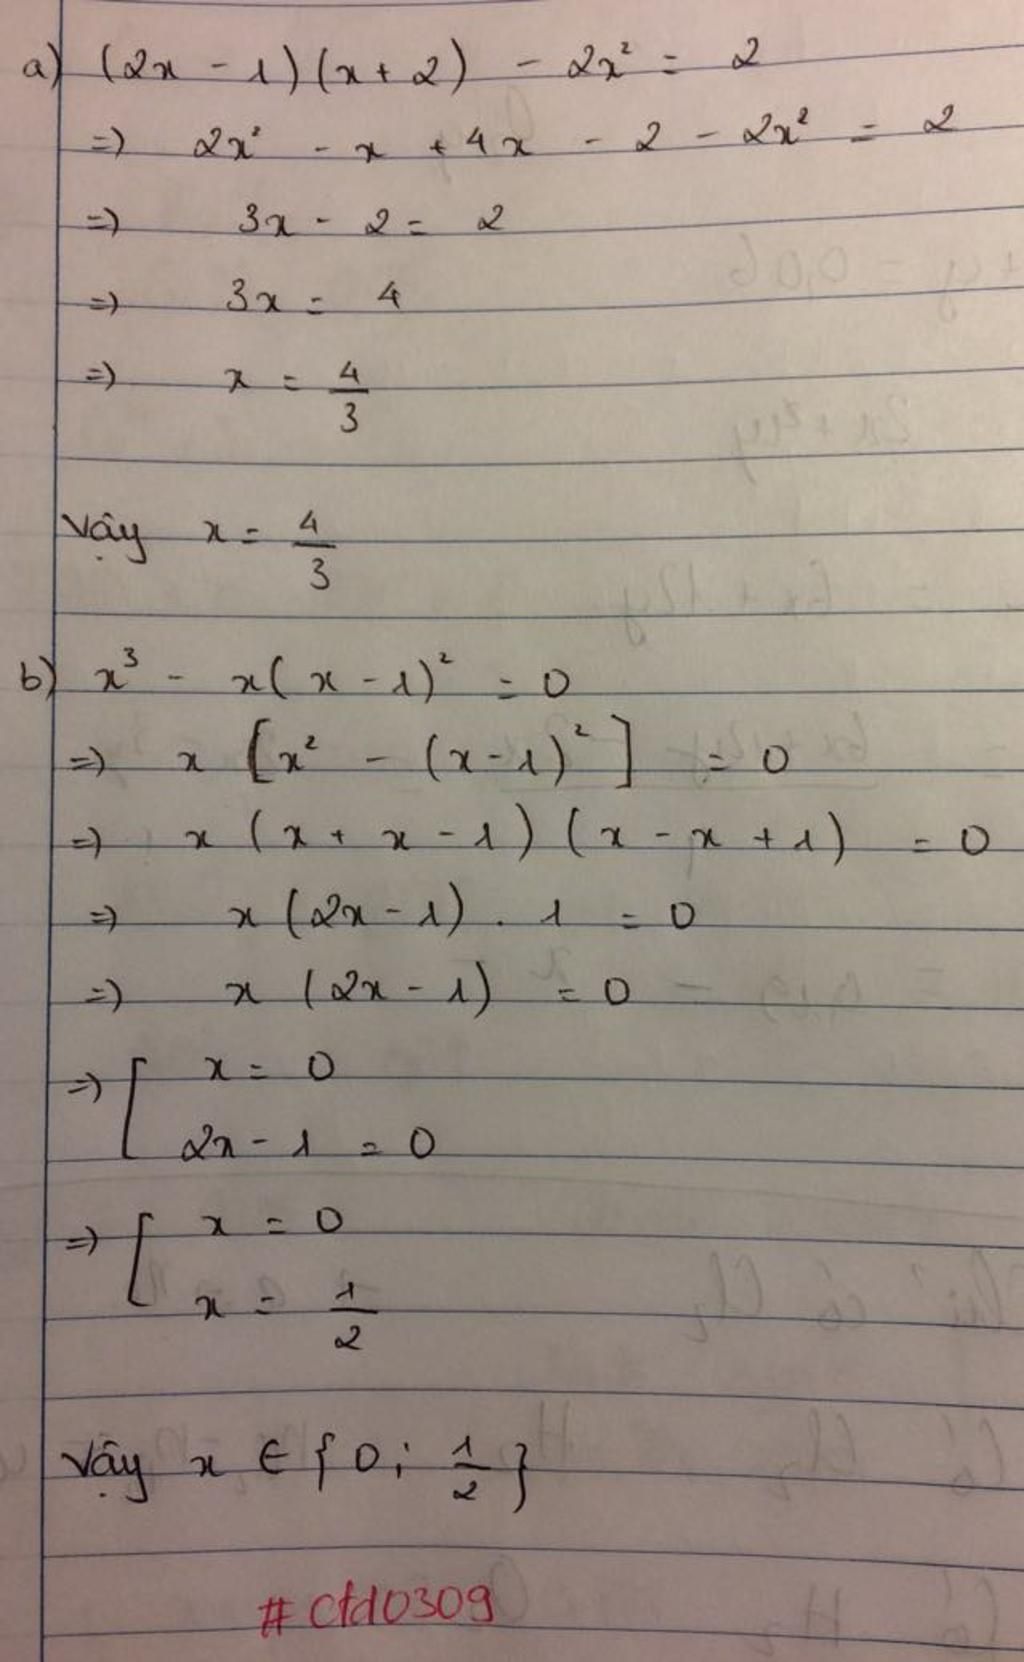 a) (2x - 1)(x + 2) - 2x² = 2
=) 2x² - x + 4x - 2 - 2x² = 2
=) 3x - 2 = 2
=) 3x = 4
=) x = 4/3
Vậy x = 4/3
b) x³ - x(x - 1)² = 0
=) x [x² - (x - 1)²] = 0
=) x (x + x - 1) (x - x + 1) = 0
=) x (2x - 1) . 1 = 0
=) x (2x - 1) = 0
=) [ x = 0
2x - 1 = 0
=) [ x = 0
x = 1/2
Vậy x ∈ {0 ; 1/2}
# ctd0309